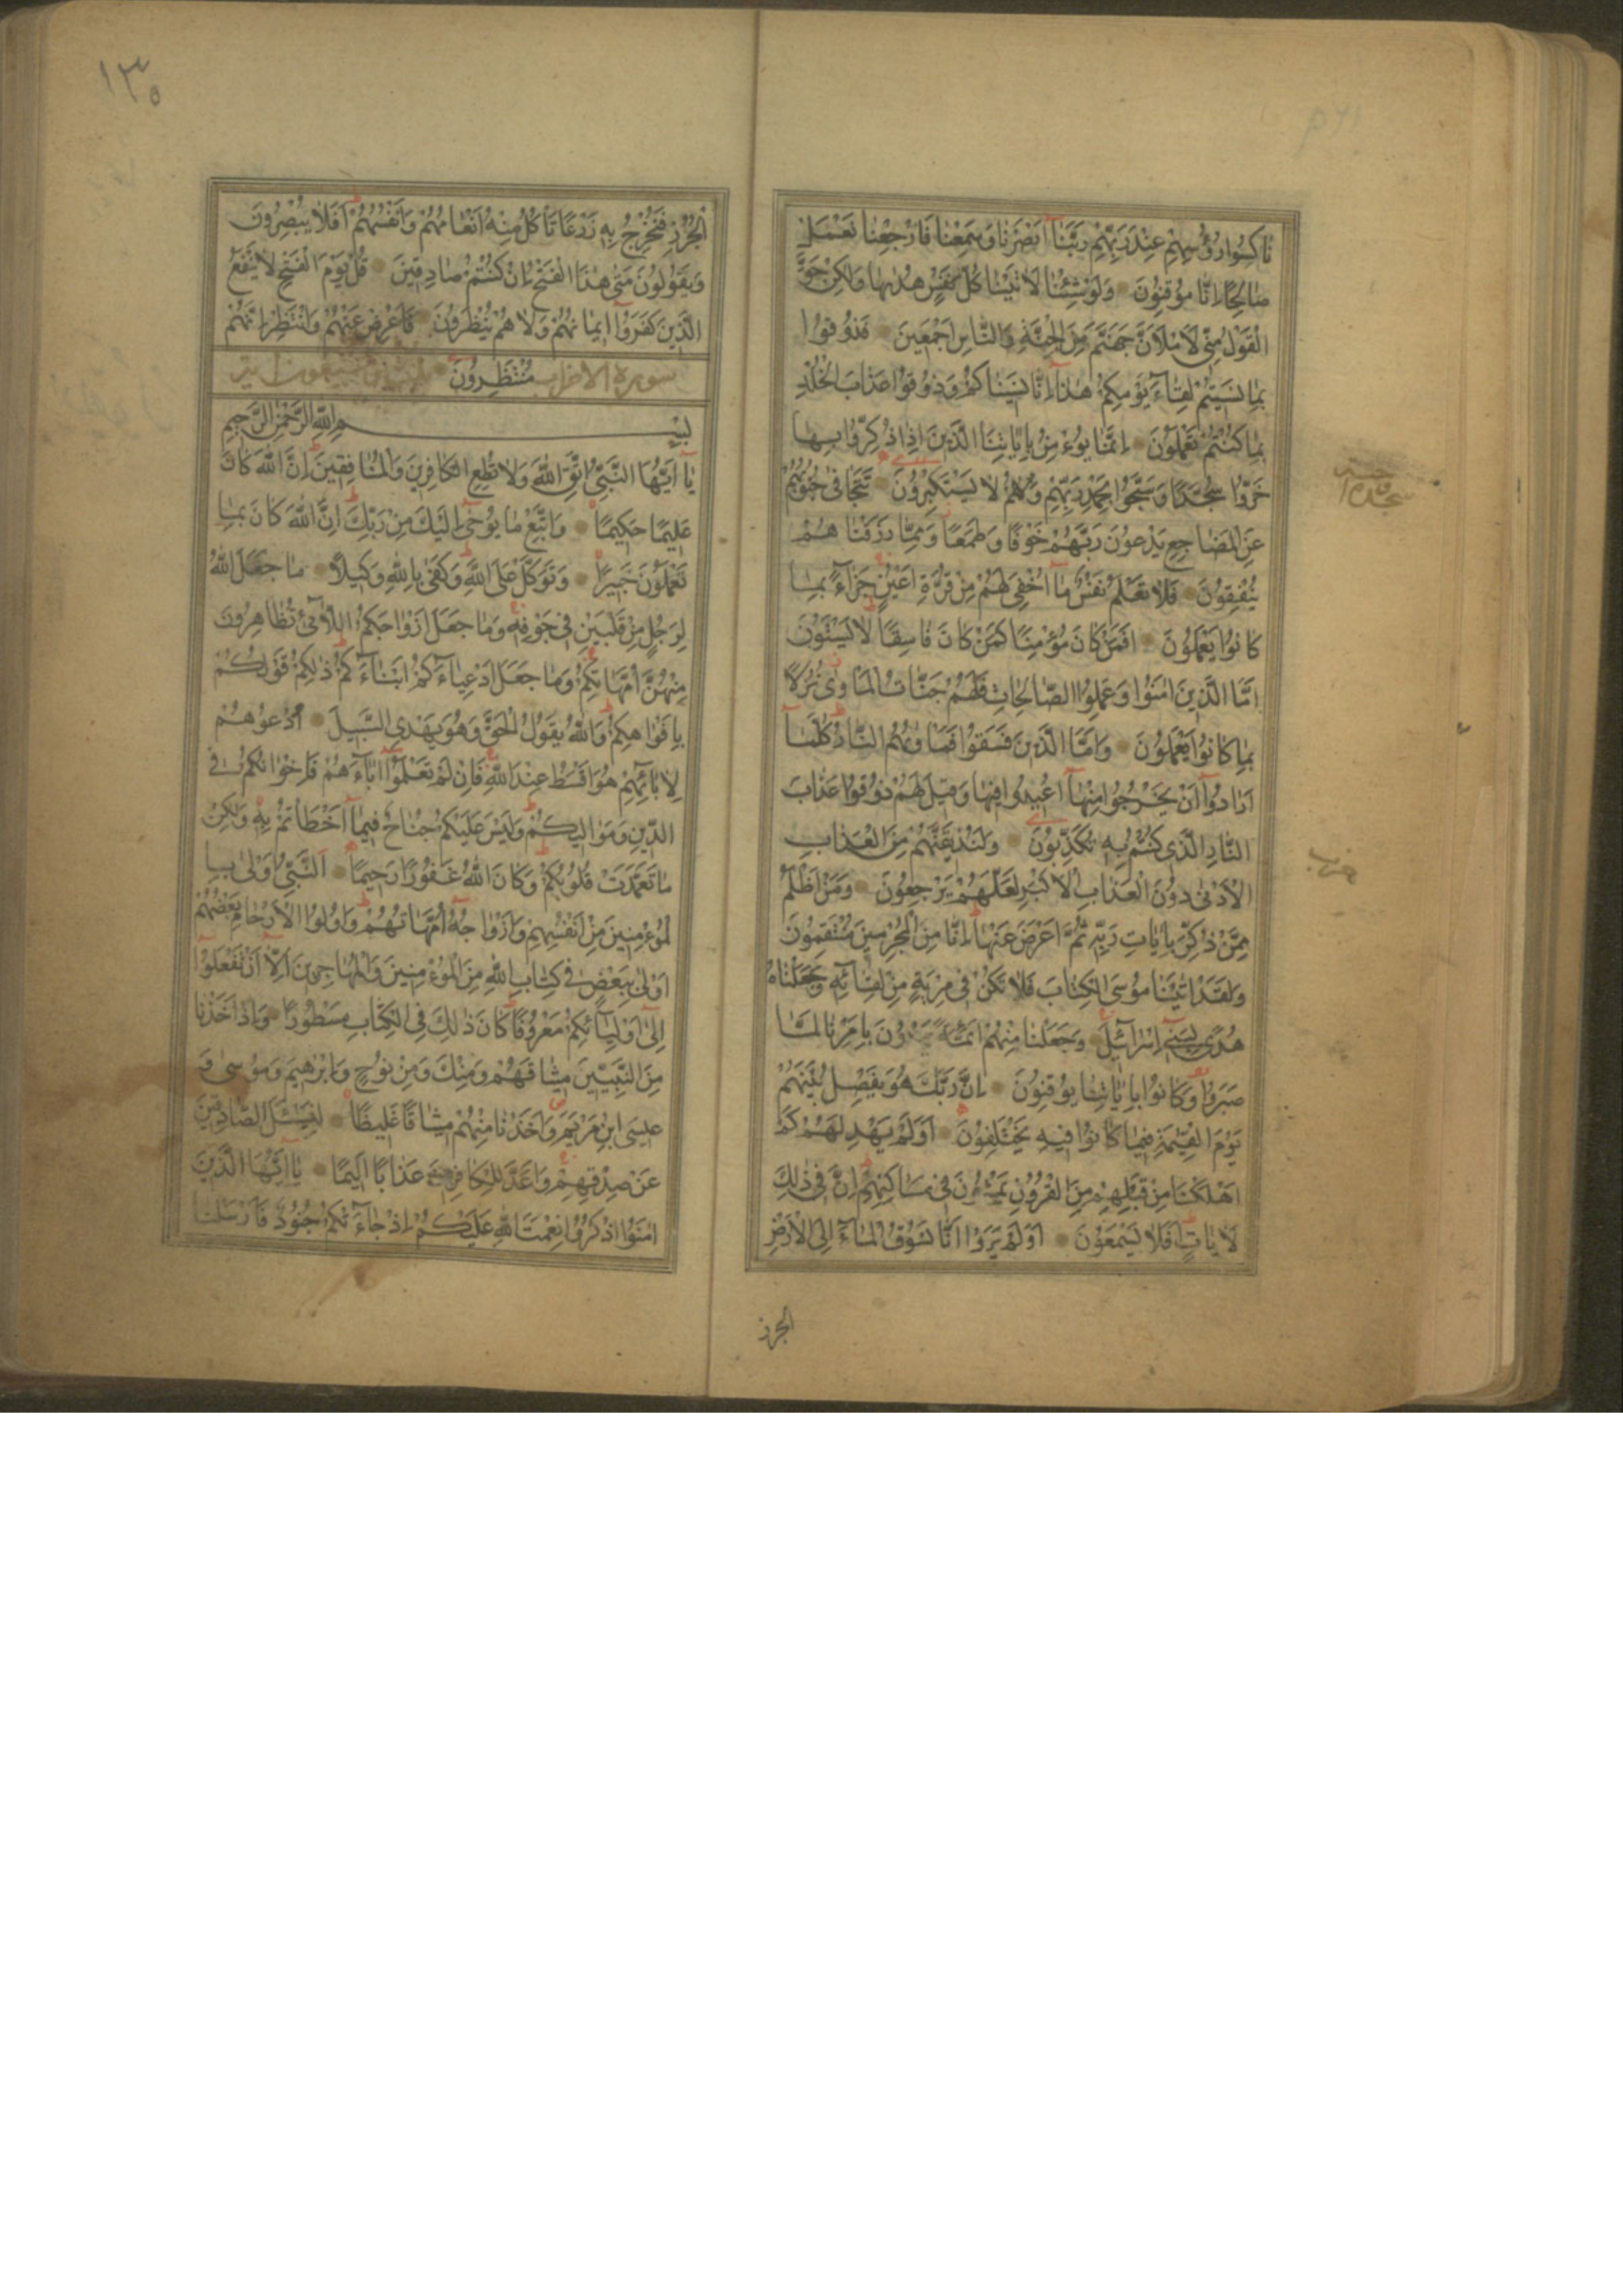 ناكسوا رؤسهم عند ربهم ربنا ابصرنا وسمعنا فارجعنا نعمل
صالحا انا موقنون ولو شئنا لاتينا كل نفس هداها ولكن حق
القول منى لاملان جهنم من الجنة والناس اجمعين فذوقوا
بما نسيتم لقاء يومكم هذا انا نسيناكم وذوقوا عذاب الخلد
بما كنتم تعملون انما يؤمن باياتنا الذين اذا ذكروا بها
خروا سجدا وسبحوا بحمد ربهم وهم لا يستكبرون تتجافى جنوبهم
عن المضاجع يدعون ربهم خوفا وطمعا ومما رزقناهم
ينفقون فلا تعلم نفس ما اخفى لهم من قرة اعين جزاء بما
كانوا يعملون افمن كان مؤمنا كمن كان فاسقا لا يستون
اما الذين امنوا وعملوا الصالحات فلهم جنات الماوى نزلا
بما كانوا يعملون واما الذين فسقوا فماويهم النار كلما
ارادوا ان يخرجوا منها اعيدوا فيها وقيل لهم ذوقوا عذاب
النار الذى كنتم به تكذبون ولنذيقنهم من العذاب
الادنى دون العذاب الاكبر لعلهم يرجعون ومن اظلم
ممن ذكر بايات ربه ثم اعرض عنها انا من المجرمين منتقمون
ولقد اتينا موسى الكتاب فلا تكن فى مرية من لقائه وجعلناه
هدى لبنى اسرائل وجعلنا منهم ائمة يهدون بامرنا لما
صبروا وكانوا باياتنا يوقنون ان ربك هو يفصل بينهم
يوم القيمة فيما كانوا فيه يختلفون اولم يهد لهم كم
اهلكنا من قبلهم من القرون يمشون فى مساكنهم ان فى ذلك
لايات افلا يسمعون اولم يروا انا نسوق الماء الى الارض
الجرز
حزب
١٣٥
الجرز فنخرج به زرعا تاكل منه انعامهم وانفسهم افلا يبصرون
ويقولون متى هذا الفتح ان كنتم صادقين قل يوم الفتح لا ينفع
الذين كفروا ايمانهم ولا هم ينظرون فاعرض عنهم وانتظر انهم
منتظرون سورة الاحزاب
بسم الله الرحمن الرحيم
يا ايها النبى اتق الله ولا تطع الكافرين والمنافقين ان الله كان
عليما حكيما واتبع ما يوحى اليك من ربك ان الله كان بما
تعملون خبيرا وتوكل على الله وكفى بالله وكيلا ما جعل الله
لرجل من قلبين فى جوفه وما جعل ازواجكم اللائى تظاهرون
منهن امهاتكم وما جعل ادعياءكم ابناءكم ذلكم قولكم
بافواهكم والله يقول الحق وهو يهدى السبيل ادعوهم
لابائهم هو اقسط عند الله فان لم تعلموا اباءهم فاخوانكم فى
الدين ومواليكم وليس عليكم جناح فيما اخطاتم به ولكن
ما تعمدت قلوبكم وكان الله غفورا رحيما النبى اولى با
لمؤمنين من انفسهم وازواجه امهاتهم واولوا الارحام بعضهم
اولى ببعض فى كتاب الله من المؤمنين والمهاجرين الا ان تفعلوا
الى اوليائكم معروفا كان ذلك فى الكتاب مسطورا واذ اخذنا
من النبيين ميثاقهم ومنك ومن نوح وابرهيم وموسى و
عيسى ابن مريم واخذنا منهم ميثاقا غليظا ليسئل الصادقين
عن صدقهم واعد للكافرين عذابا اليما يا ايها الذين
امنوا اذكروا نعمت الله عليكم اذ جاءتكم جنود فارسلنا